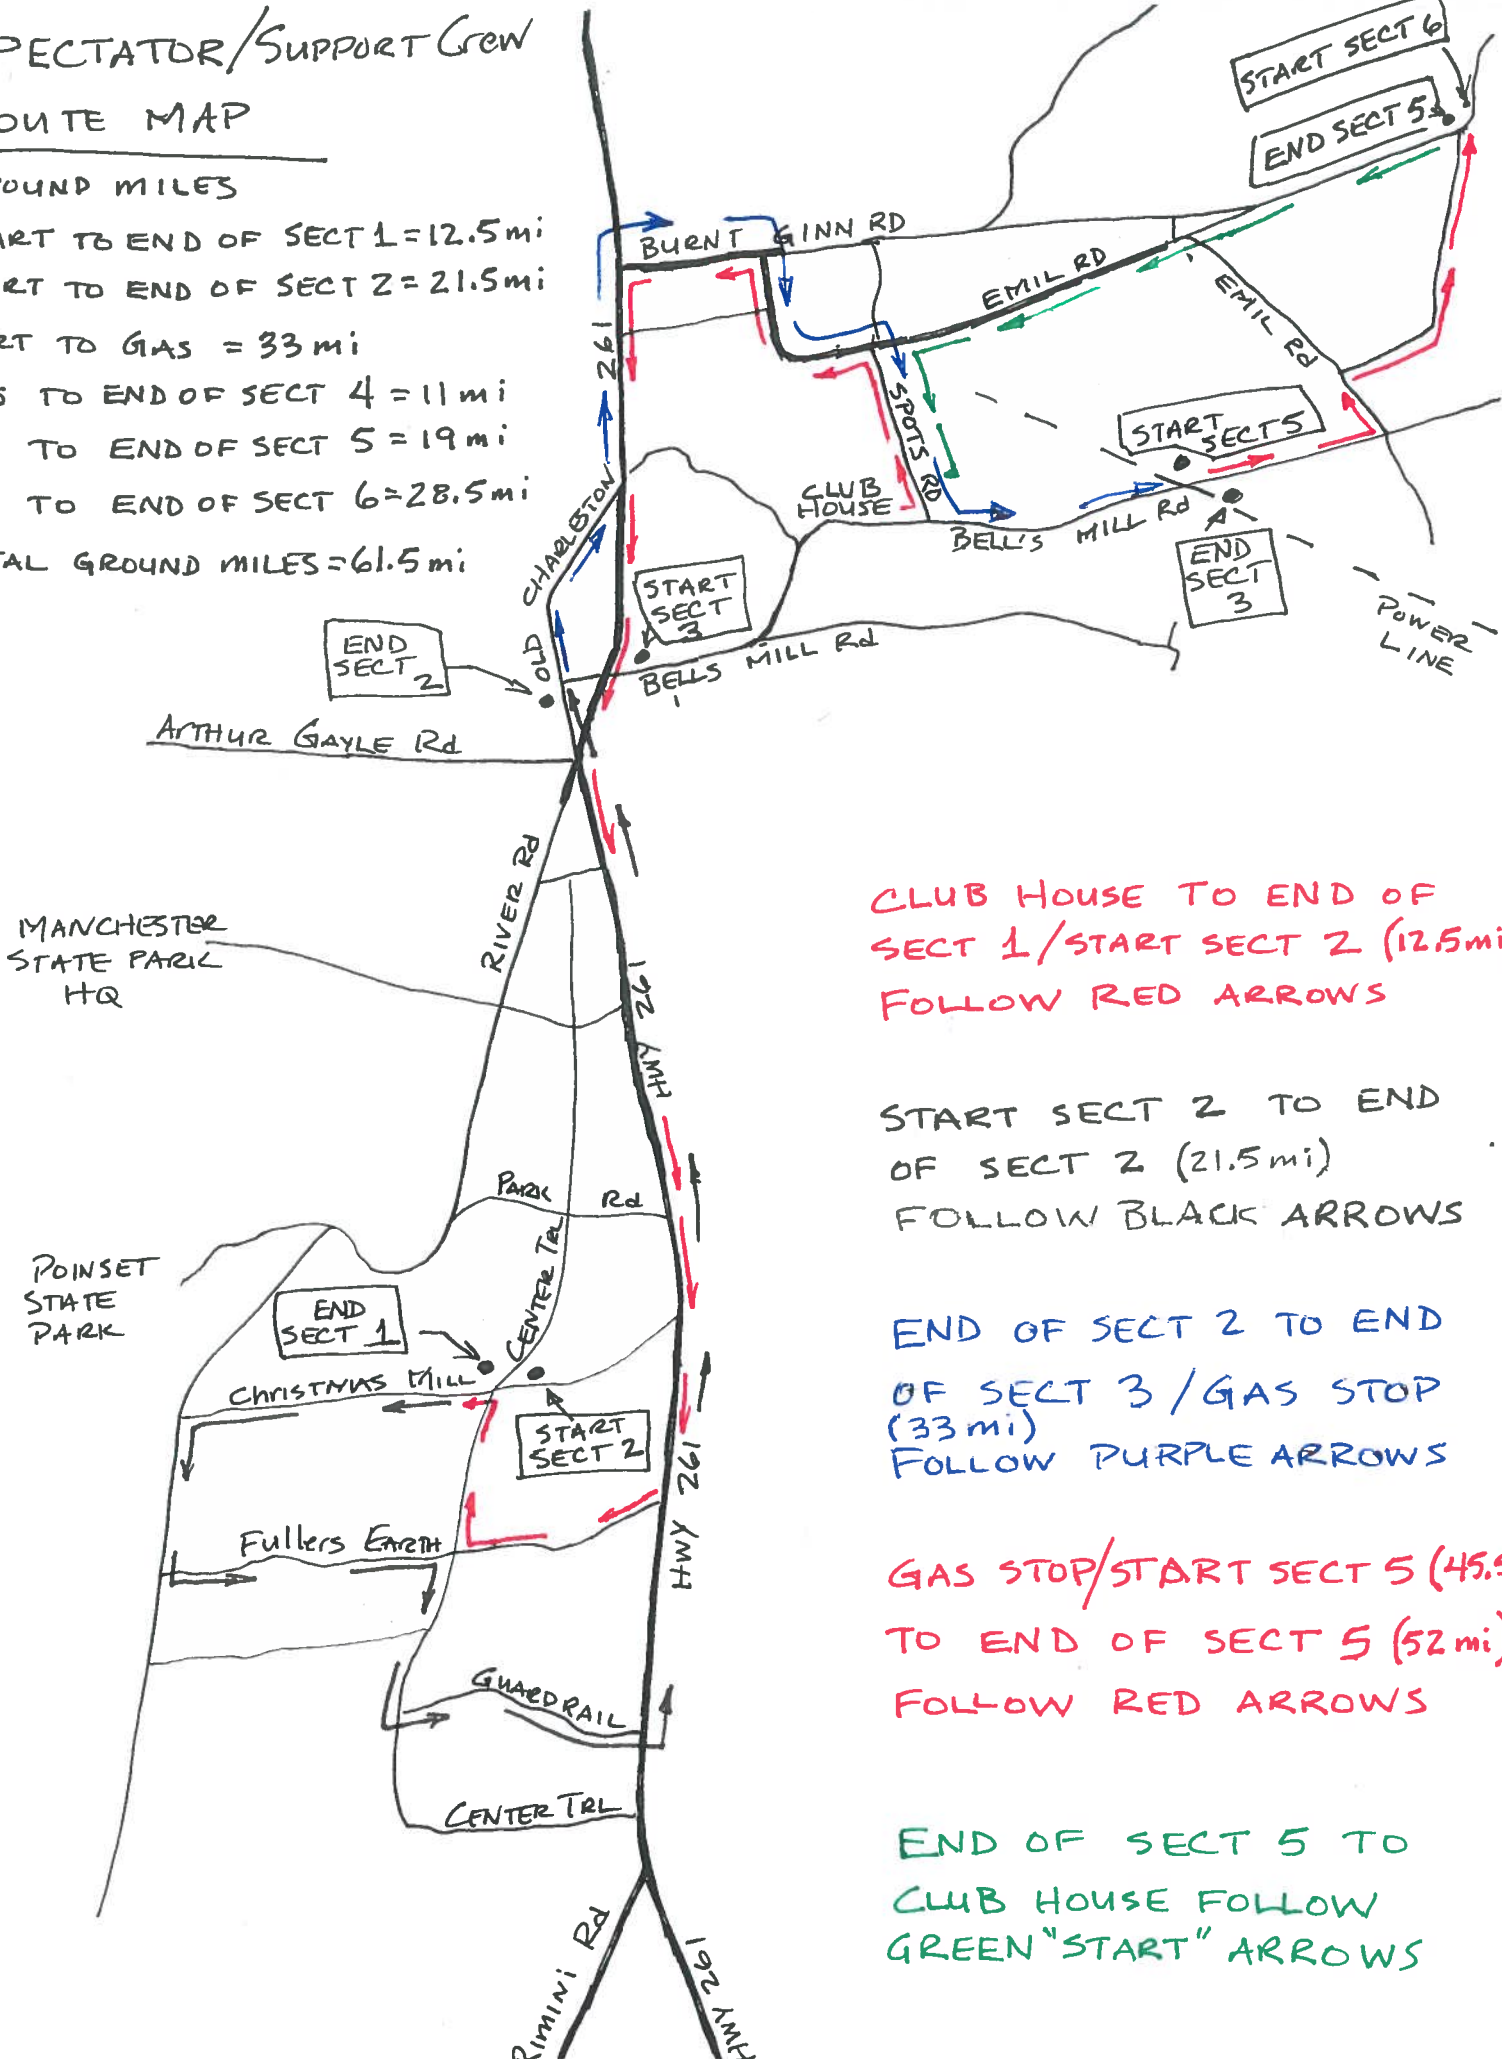 PECTATOR/SUPPORT CREW
OUTE MAP
OUND MILES
ART TO END OF SECT 1 = 12.5 mi
RT TO END OF SECT 2 = 21.5 mi
RT TO GAS = 33 mi
S TO END OF SECT 4 = 11 mi
TO END OF SECT 5 = 19 mi
TO END OF SECT 6 = 28.5 mi
TAL GROUND MILES = 61.5 mi
START SECT 6
END SECT 5
BURNT GINN RD
EMIL RD
EMIL Rd
261
SPOTS RD
START
SECT 5
CLUB
HOUSE
BELL'S MILL Rd
END
SECT
3
POWER
LINE
OLD CHARLESTON
START
SECT
3
BELLS MILL Rd
END
SECT
2
ARTHUR GAYLE Rd
RIVER Rd
MANCHESTER
STATE PARK
HQ
HWY 261
PARK Rd
CENTER TRL
POINSET
STATE
PARK
END
SECT 1
CHRISTMAS MILL
START
SECT 2
HWY 261
Fullers EARTH
GUARDRAIL
CENTER TRL
RIMINI Rd
HWY 261
CLUB HOUSE TO END OF
SECT 1/START SECT 2 (12.5mi
FOLLOW RED ARROWS
START SECT 2 TO END
OF SECT 2 (21.5 mi)
FOLLOW BLACK ARROWS
END OF SECT 2 TO END
OF SECT 3 / GAS STOP
(33 mi)
FOLLOW PURPLE ARROWS
GAS STOP/START SECT 5 (45.5
TO END OF SECT 5 (52 mi)
FOLLOW RED ARROWS
END OF SECT 5 TO
CLUB HOUSE FOLLOW
GREEN "START" ARROWS